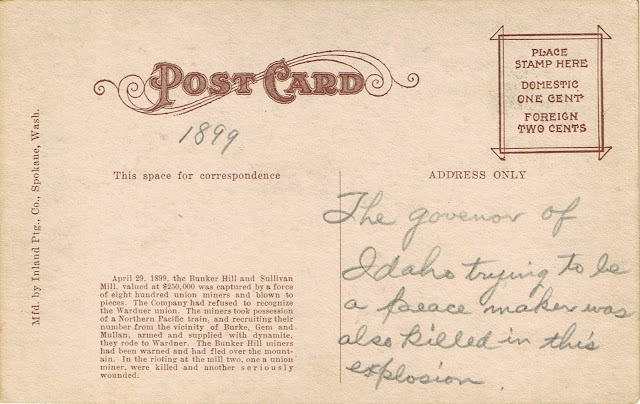 POST CARD
PLACE
STAMP HERE
DOMESTIC
ONE CENT
FOREIGN
TWO CENTS
1899
This space for correspondence
ADDRESS ONLY
Mfd. by Inland Ptg., Co., Spokane, Wash.
April 29, 1899, the Bunker Hill and Sullivan
Mill, valued at $250,000 was captured by a force
of eight hundred union miners and blown to
pieces. The Company had refused to recognize
the Wardner union. The miners took possession
of a Northern Pacific train, and recruiting their
number from the vicinity of Burke, Gem and
Mullan, armed and supplied with dynamite,
they rode to Wardner. The Bunker Hill miners
had been warned and had fled over the mount-
ain. In the rioting at the mill two, one a union
miner, were killed and another seriously
wounded.
The govenor of
Idaho trying to be
a peace maker was
also killed in this
explosion.